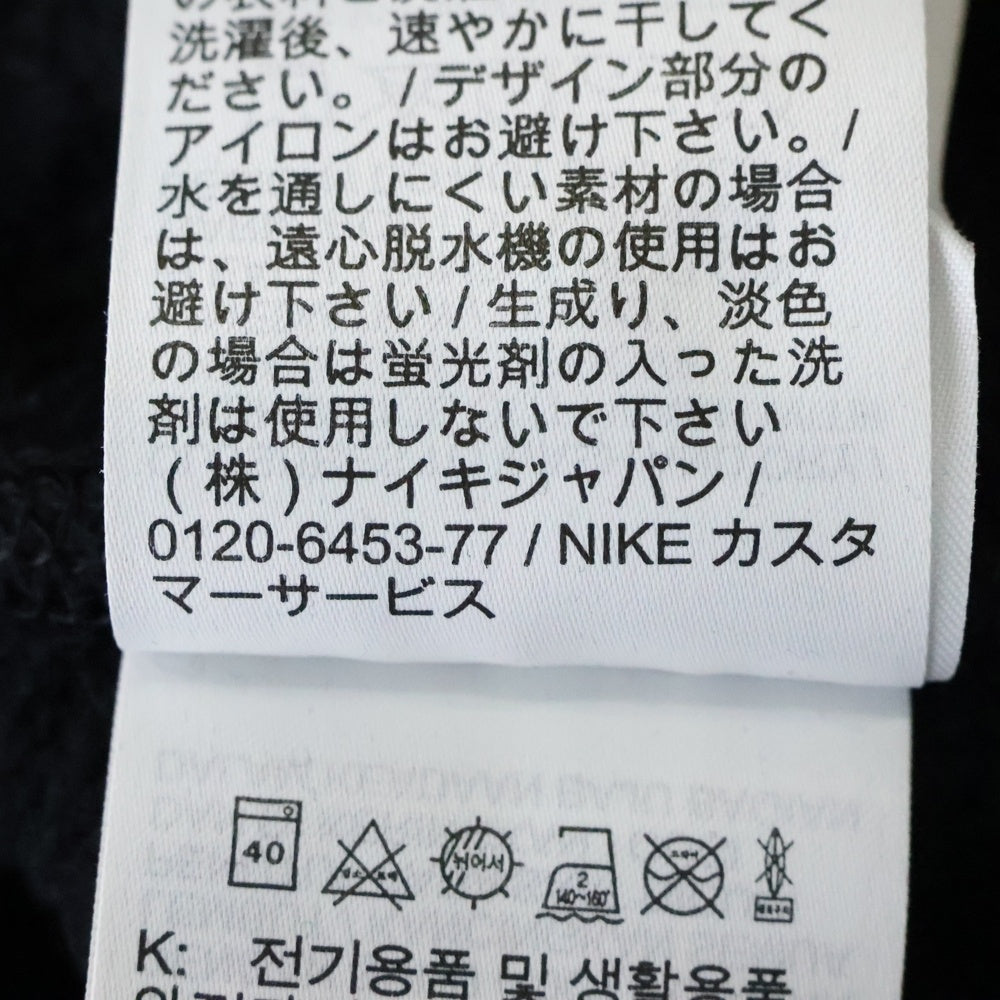 洗濯後、速やかに干してく
ださい。 / デザイン部分の
アイロンはお避け下さい。 /
水を通しにくい素材の場合
は、遠心脱水機の使用はお
避け下さい / 生成り、淡色
の場合は蛍光剤の入った洗
剤は使用しないで下さい
(株)ナイキジャパン /
0120-6453-77 / NIKE カスタ
マーサービス
40
뉘어서
2
140~160°
K: 전기용품 및 생활용품